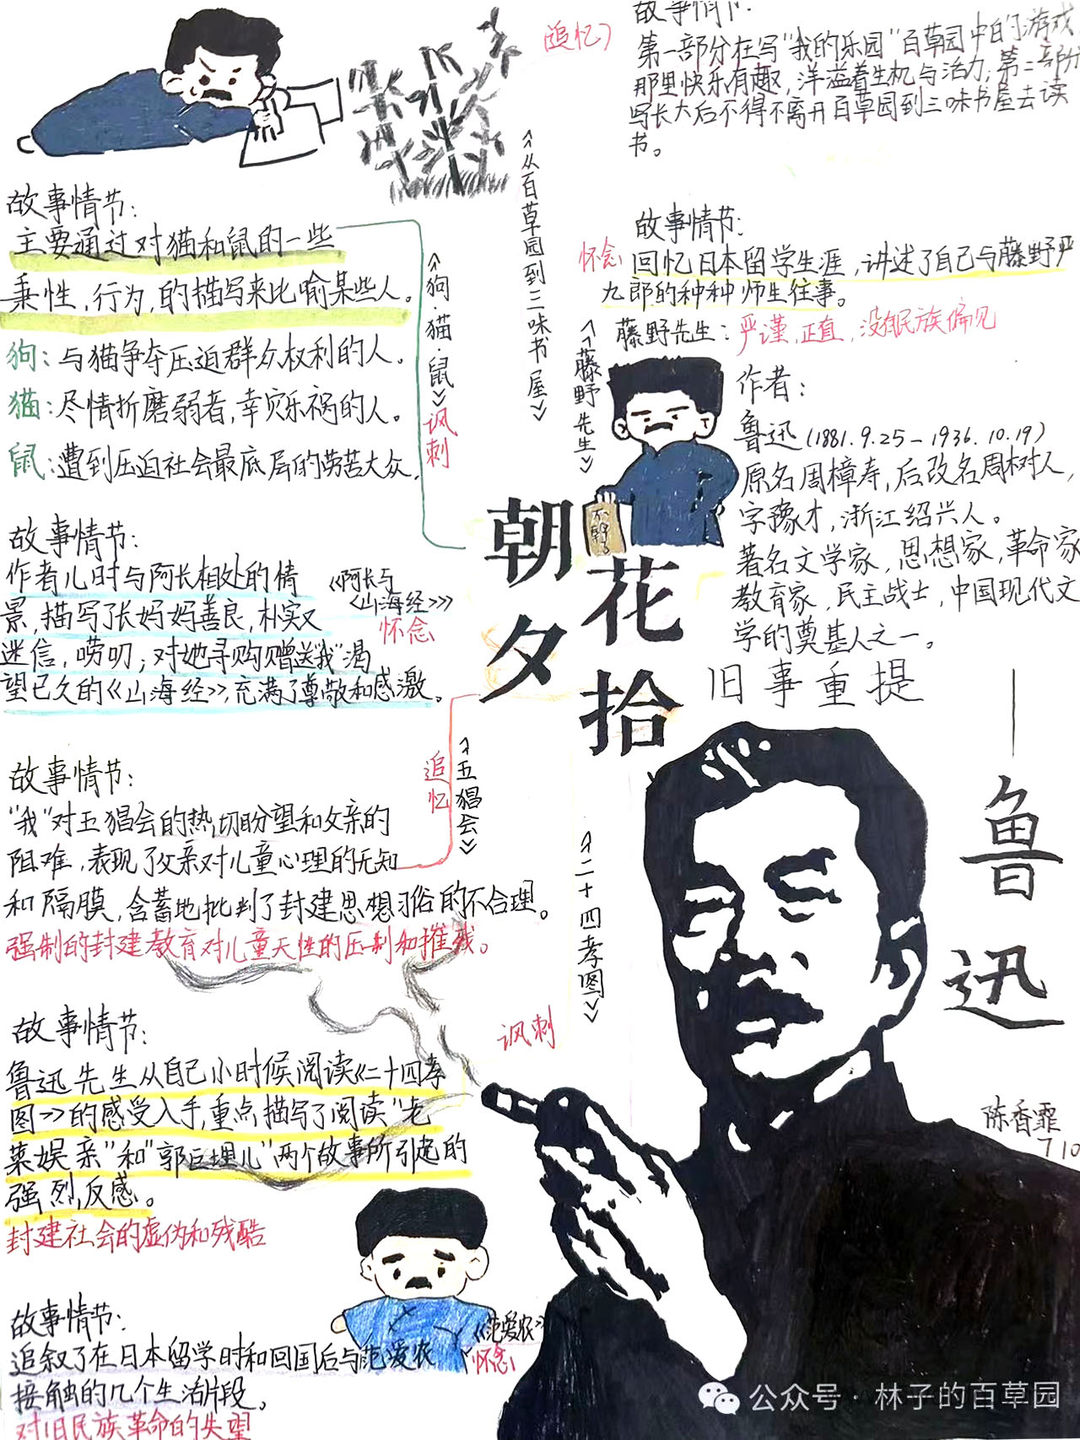 故事情节:
主要通过对猫和鼠的一些
秉性,行为,的描写来比喻某些人。
狗:与猫争夺压迫群众权利的人。
猫:尽情折磨弱者,幸灾乐祸的人。
鼠:遭到压迫社会最底层的劳苦大众,
《狗·猫·鼠》
讽刺
故事情节:
作者儿时与阿长相处的情
景,描写了长妈妈善良,朴实又
迷信,唠叨;对她寻购赠送"我"渴
望已久的《山海经》,充满了尊敬和感激。
《阿长与
《山海经》》
怀念
故事情节:
"我"对五猖会的热切盼望和父亲的
阻难,表现了父亲对儿童心理的无知
和隔膜,含蓄地批判了封建思想习俗的不合理。
强制的封建教育对儿童天性的压制和摧残。
追忆
《五猖会》
故事情节:
鲁迅先生从自己小时候阅读《二十四孝
图》的感受入手,重点描写了阅读"老
莱娱亲"和"郭巨埋儿"两个故事所引起的
强烈反感。
封建社会的虚伪和残酷
讽刺
《二十四孝图》
故事情节:
追叙了在日本留学时和回国后与范爱农
接触的几个生活片段。
对旧民族革命的失望
《范爱农》
怀念
(追忆)
《从百草园到三味书屋》
故事情节:
第一部分在写"我的乐园"百草园中的游戏,
那里快乐有趣,洋溢着生机与活力,第二部分
写长大后不得不离开百草园到三味书屋去读
书。
故事情节:
怀念
回忆日本留学生涯,讲述了自己与藤野严
九郎的种种师生往事。
藤野先生:严谨,正直,没有民族偏见
《藤野先生》
作者:
鲁迅(1881.9.25-1936.10.19)
原名周樟寿,后改名周树人,
字豫才,浙江绍兴人。
著名文学家,思想家,革命家
教育家,民主战士,中国现代文
学的奠基人之一。
朝花夕拾
旧事重提
——鲁迅
陈香霏
710
公众号·林子的百草园